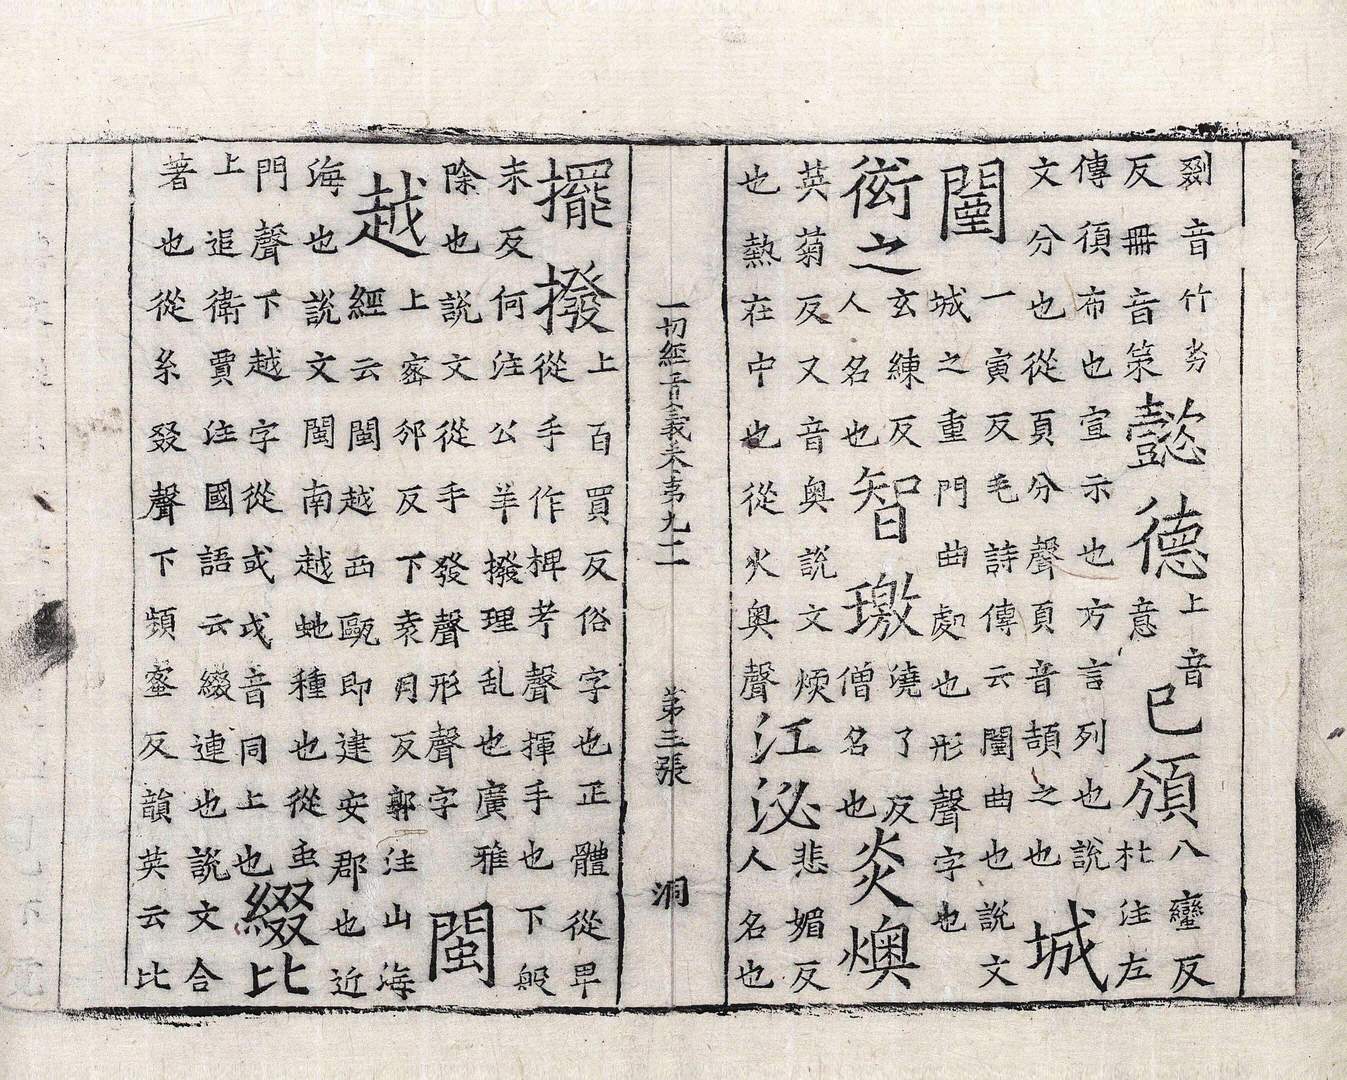 剟音竹劣
反冊音策
懿德
上音
意
已頒
八蠻反
杜注左
傳頒布也宣示也方言列也說
文分也從頁分聲頁音頡之也
城
闉
一寅反毛詩傳云闉曲也說文
城之重門曲處也形聲字也
衒之
玄練反
人名也
智璬
澆了反
僧名也
炎燠
英菊反又音奧說文煗
也熱在中也從火奧聲
江泌
悲媚反
人名也
一切經音義卷第九二 第三張 洞
擺撥
上百買反俗字也正體從卑
從手作捭考聲揮手也下般
末反何注公羊撥理乱也廣雅
除也說文從手發聲形聲字
閩
越
上密邠反下袁月反郭注山海
經云閩越西甌即建安郡也近
海也說文閩南越虵種也從虫
門聲下越字從戉戉音同上也
綴比
上追衛賈注國語云綴連也說文合
著也從糸叕聲下頻蜜反韻英云比